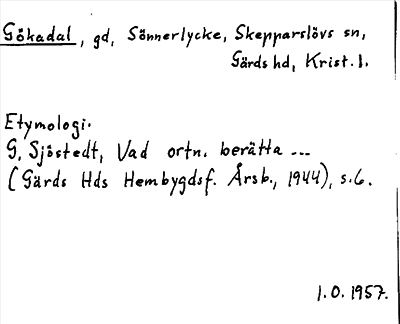 Gökadal, gd, Sönnerlycke, Skepparslövs sn,
Gärds hd, Krist. l.
Etymologi.
G. Sjöstedt, Vad ortn. berätta ...
(Gärds Hds Hembygdsf. Årsb., 1944), s. 6.
1.O. 1957.